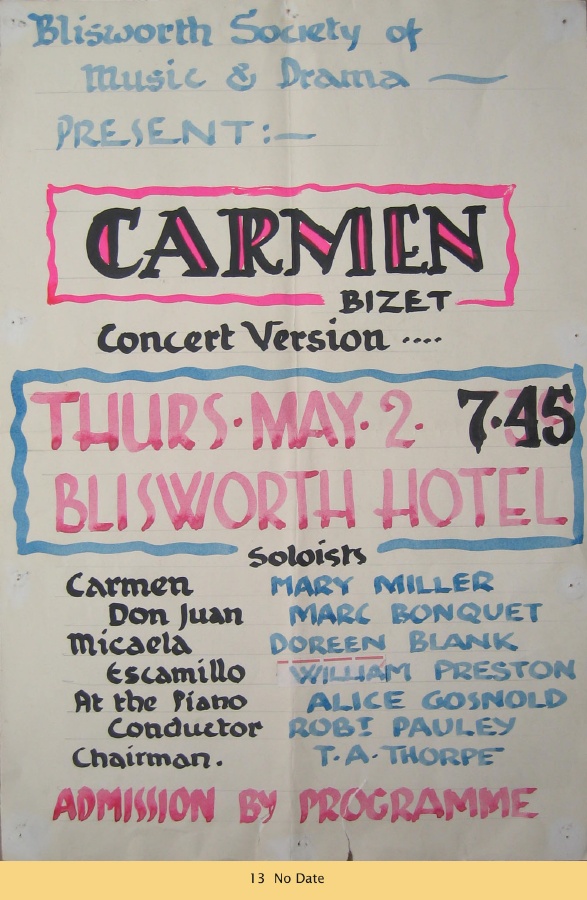 Blisworth Society of
Music & Drama —
PRESENT:—
CARMEN
BIZET
Concert Version ....
THURS·MAY·2· 7·45
BLISWORTH HOTEL
Soloists
Carmen MARY MILLER
Don Juan MARC BONQUET
Micaela DOREEN BLANK
Escamillo WILLIAM PRESTON
At the Piano ALICE GOSNOLD
Conductor ROBT PAULEY
Chairman. T·A·THORPE
ADMISSION BY PROGRAMME
13 No Date